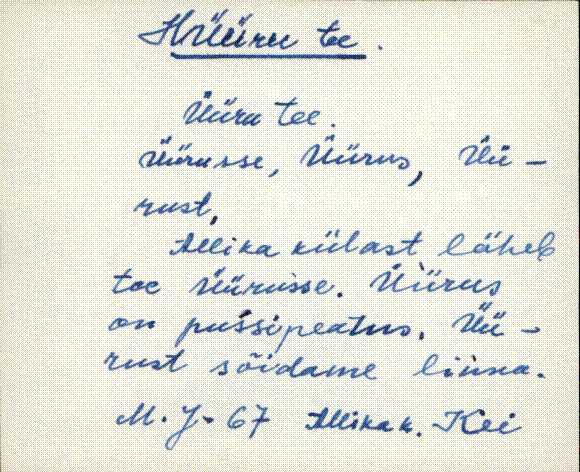 Hüüru tee.
Üüru tee.
Üürusse, Üürus, Üü-
rust,
Allika külast läheb
tee Üürusse. Üürus
on pussipeatus. Üü-
rust sõidame linna.
M. J. 67 Allika k. Kei